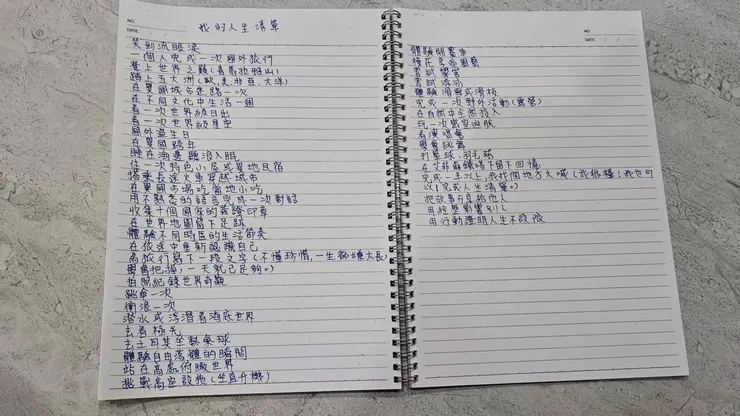 NO.
DATE
我的人生清單
笑到流眼淚
一個人完成一次國外旅行
登上世界之巔(喜馬拉雅山)
踏上五大洲(歐.美.非.亞.大洋)
在異國城市迷路一次
在不同文化中生活一週
看一次世界級日出
看一次世界級星空
國外過生日
在異國跨年
睡在海邊聽浪入眠
住一次特色小屋或當地民宿
搭乘長途火車穿越城市
在異國市場吃當地小吃
用不熟悉的語言完成一次對話
收集十個國家的簽證印章
在世界地圖留下足跡
體驗不同時區的生活節奏
在旅途中重新認識自己
為旅行寫下一段文字(不懂珍惜,一生都嫌太長)
學會把握,一天就已足夠。)
拍照紀錄世界奇觀
跳傘一次
衝浪一次
潛水或浮潛看海底世界
去看極光
去土耳其坐熱氣球
體驗自由落體的瞬間
站在高處俯瞰世界
挑戰高空設施(坐直升機)
NO.
DATE
體驗開賽車
種花草學園藝
嘗試
嘗試
體驗滑雪或滑板
完成一次野外活動(露營)
在自然中全然投入
玩一次密室逃脫
看演唱會
學會跳舞
打籃球.羽毛球
在艾菲爾鐵塔下留下回憶
完成一半以上,我找個地方大喊(我很棒!我也可
以!完成人生清單。)
把故事分享給他人
用經歷影響別人
用行動證明人生不設限